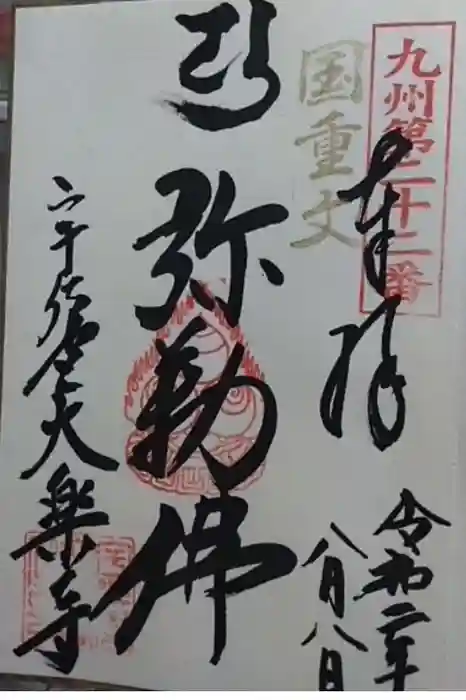 九州第二十二番
奉拝
国重文
令和二年
八月八日
弥勒佛
宇佐大楽寺